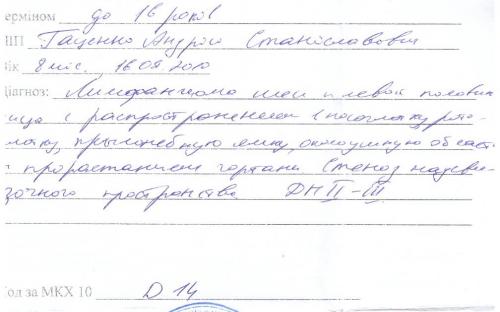 терміном до 16 років
ПІП Гаценко Андрій Станіславович
вік 8 міс. 16.09.2010
Діагноз: Лимфангиома шеи и левой половины
лица с распространением в носоглотку, рото-
глотку, крылонебную ямку, околоушную област
с прорастанием гортани Стеноз надсвя-
зочного пространства ДН II-III
Код за МКХ 10 D 14